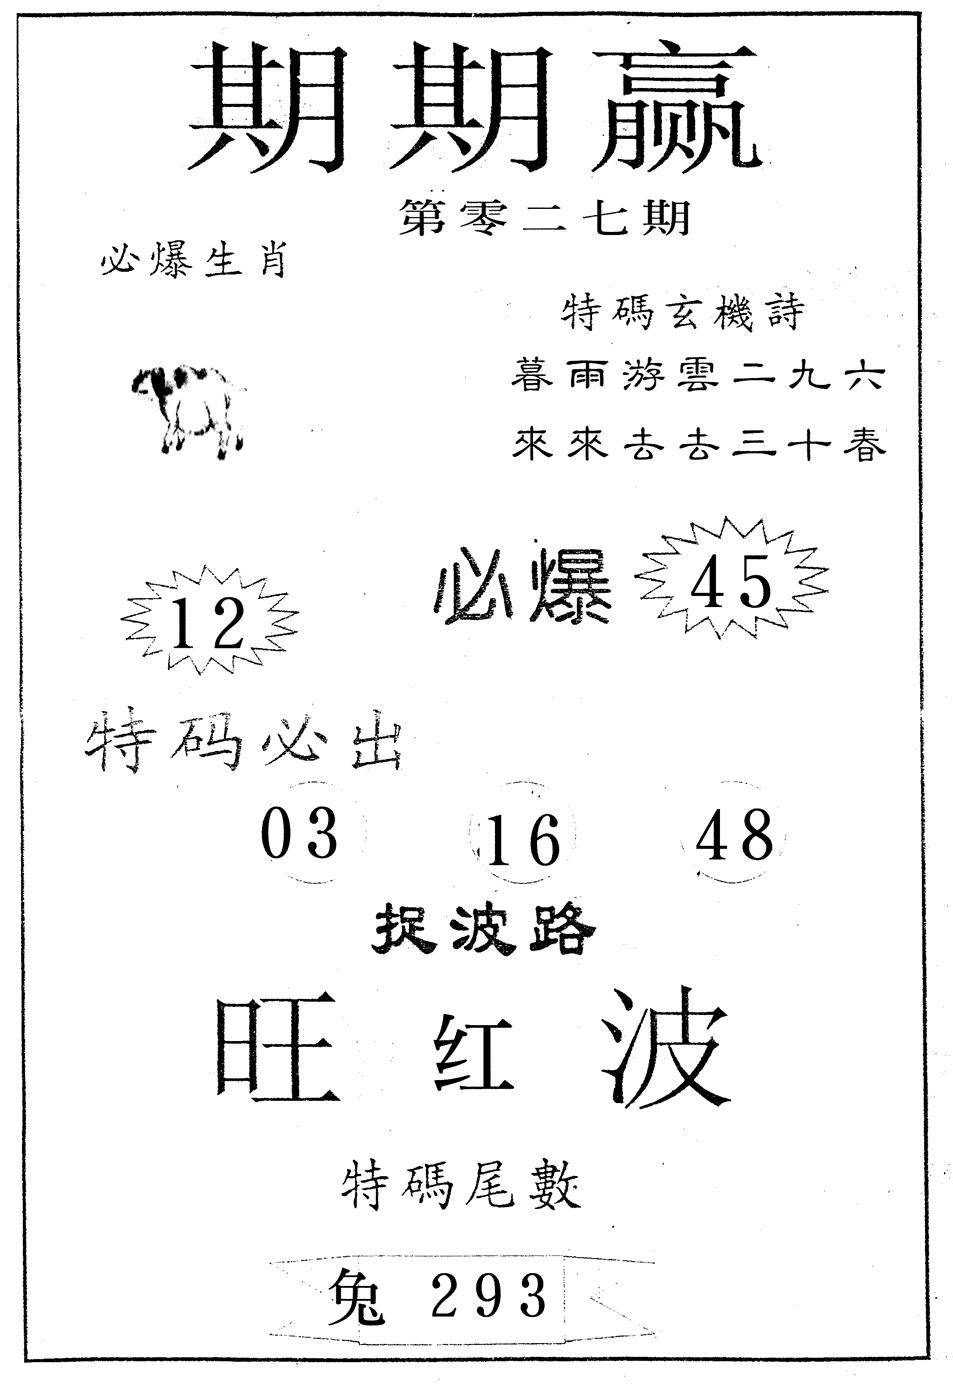 期期赢
第零二七期
必爆生肖
特碼玄機詩
暮雨游雲二九六
來來去去三十春
12
必爆 45
特码必出
03 16 48
捉波路
旺红波
特碼尾數
兔 293